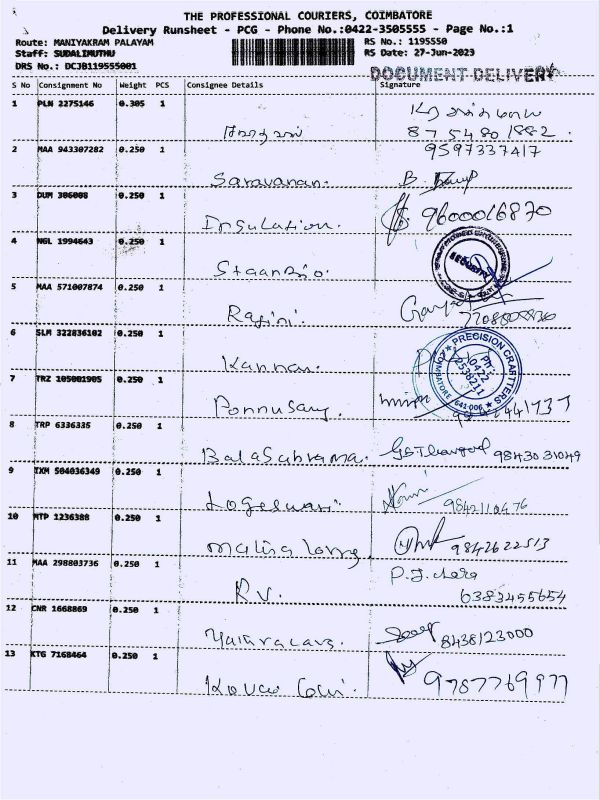 THE PROFESSIONAL COURIERS, COIMBATORE
Delivery Runsheet - PCG - Phone No.:0422-3505555 - Page No.:1
Route: MANIYAKRAM PALAYAM
RS No.: 1195550
Staff: SUDALIMUTHU
RS Date: 27-Jun-2023
DRS No.: DCJB119555001
DOCUMENT DELIVERY
S No Consignment No Weight PCS Consignee Details Signature
1 PLN 2275146 0.305 1
8754801882.
2 MAA 943307282 0.250 1
9597337417
Saravanan. B.
3 DUM 306008 0.250 1
Insulation. 9600016870
4 NGL 1994643 0.250 1
SECURITY
5 MAA 571007874 0.250 1
Ragini.
6 SLM 322836102 0.250 1
Kannan.
PRECISION CRAFTERS
PH: 0422 2538211
COIMBATORE 641 006
7 TRZ 105001905 0.250 1
Ponnusamy.
8 TRP 6336335 0.250 1
BalaSubrama. 9843031049
9 TXM 504036349 0.250 1
Logeswari
10 MTP 1236388 0.250 1
9842622513
11 MAA 298803736 0.250 1
R.V. 6383455654
12 CNR 1668869 0.250 1
8438123000
13 KTG 7168464 0.250 1
9787769977